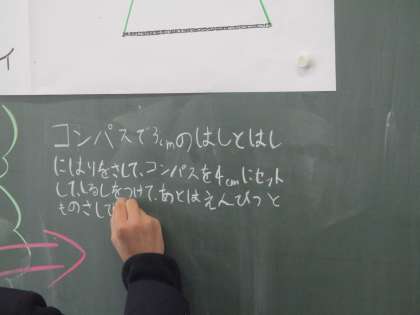 イ
コンパスで3cmのはしとはし
にはりをさして、コンパスを4cmにセット
して、しるしをつけて、あとはえんぴつと
ものさして